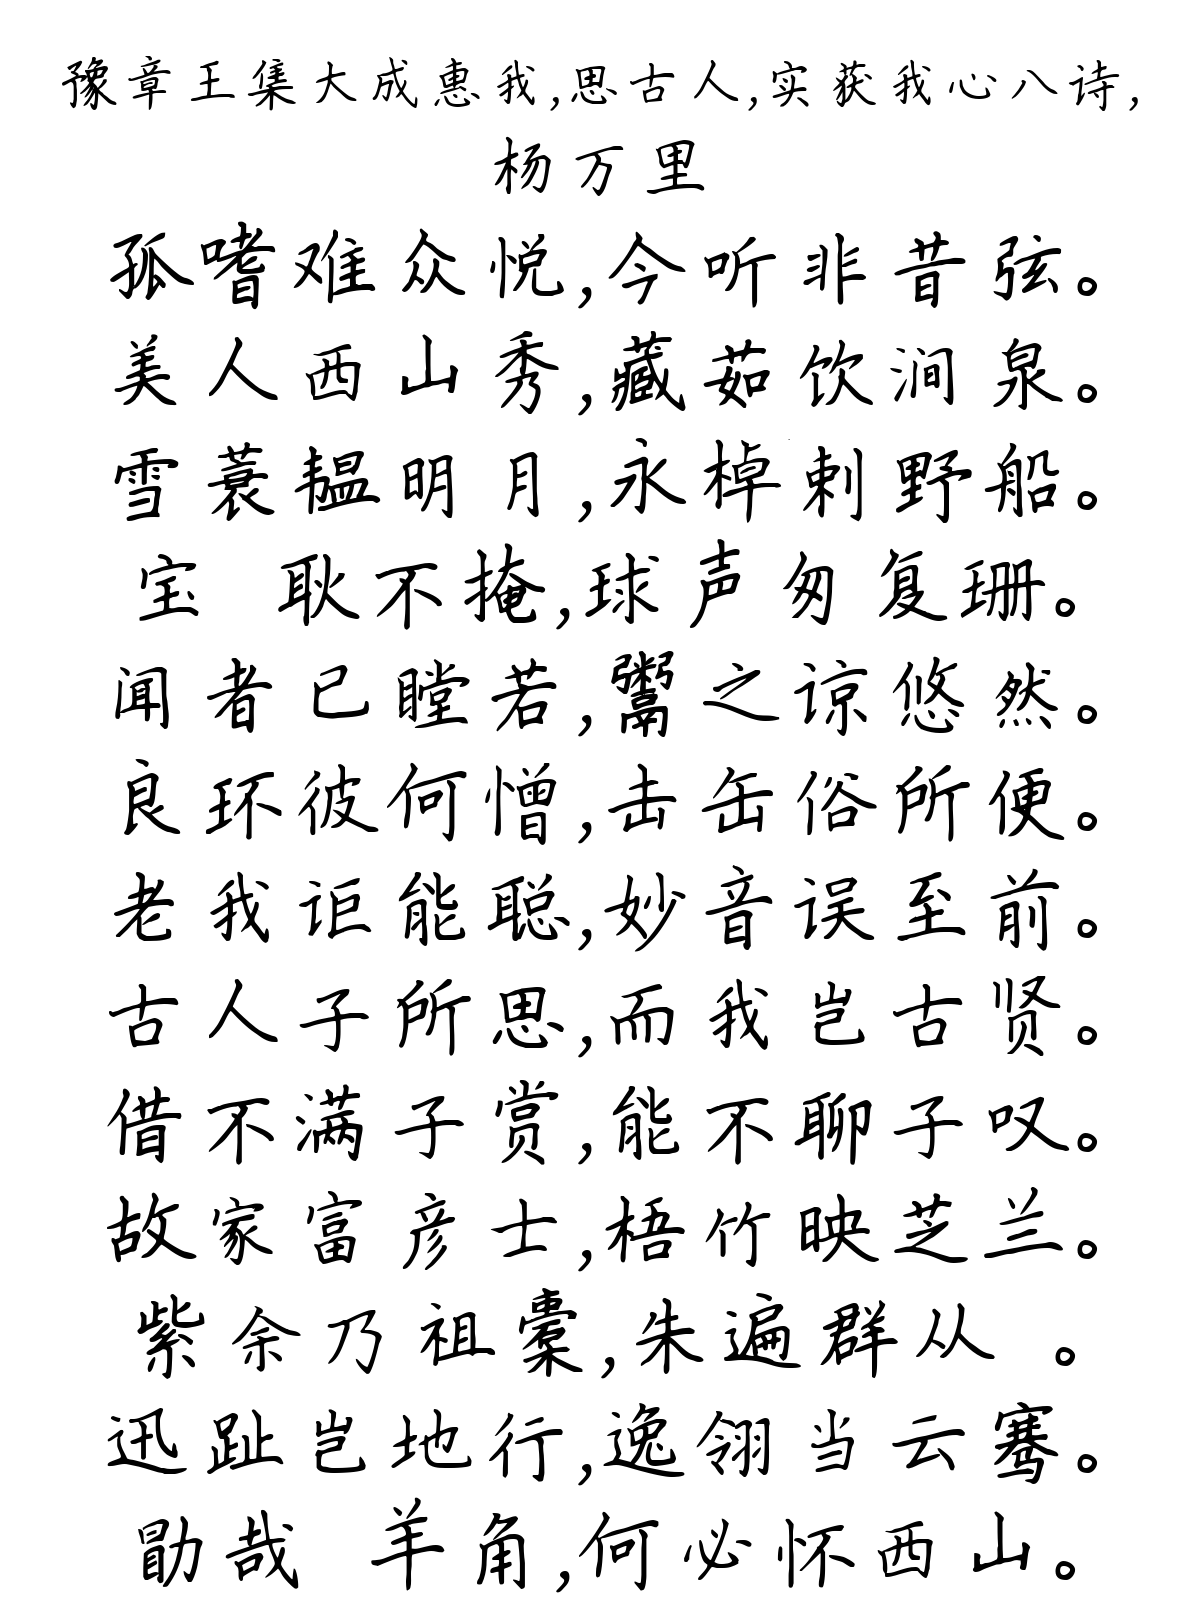 豫章王集大成惠我,思古人,实获我心八诗,
杨万里
孤嗜难众悦,今听非昔弦。
美人西山秀,藏茹饮涧泉。
雪蓑韫明月,永棹刺野船。
宝 耿不掩,球声匆复珊。
闻者已瞠若,鬻之谅悠然。
良环彼何憎,击缶俗所便。
老我讵能聪,妙音误至前。
古人子所思,而我岂古贤。
借不满子赏,能不聊子叹。
故家富彦士,梧竹映芝兰。
紫余乃祖橐,朱遍群从 。
迅趾岂地行,逸翎当云骞。
勖哉 羊角,何必怀西山。